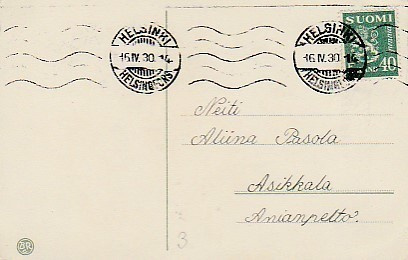 HELSINKI
16.IV.30.-14
HELSINGFORS
HELSINKI
16.IV.30.-14
HELSINGFORS
SUOMI
40
Neiti
Aliina Pasola
Asikkala
Anianpelto.
3